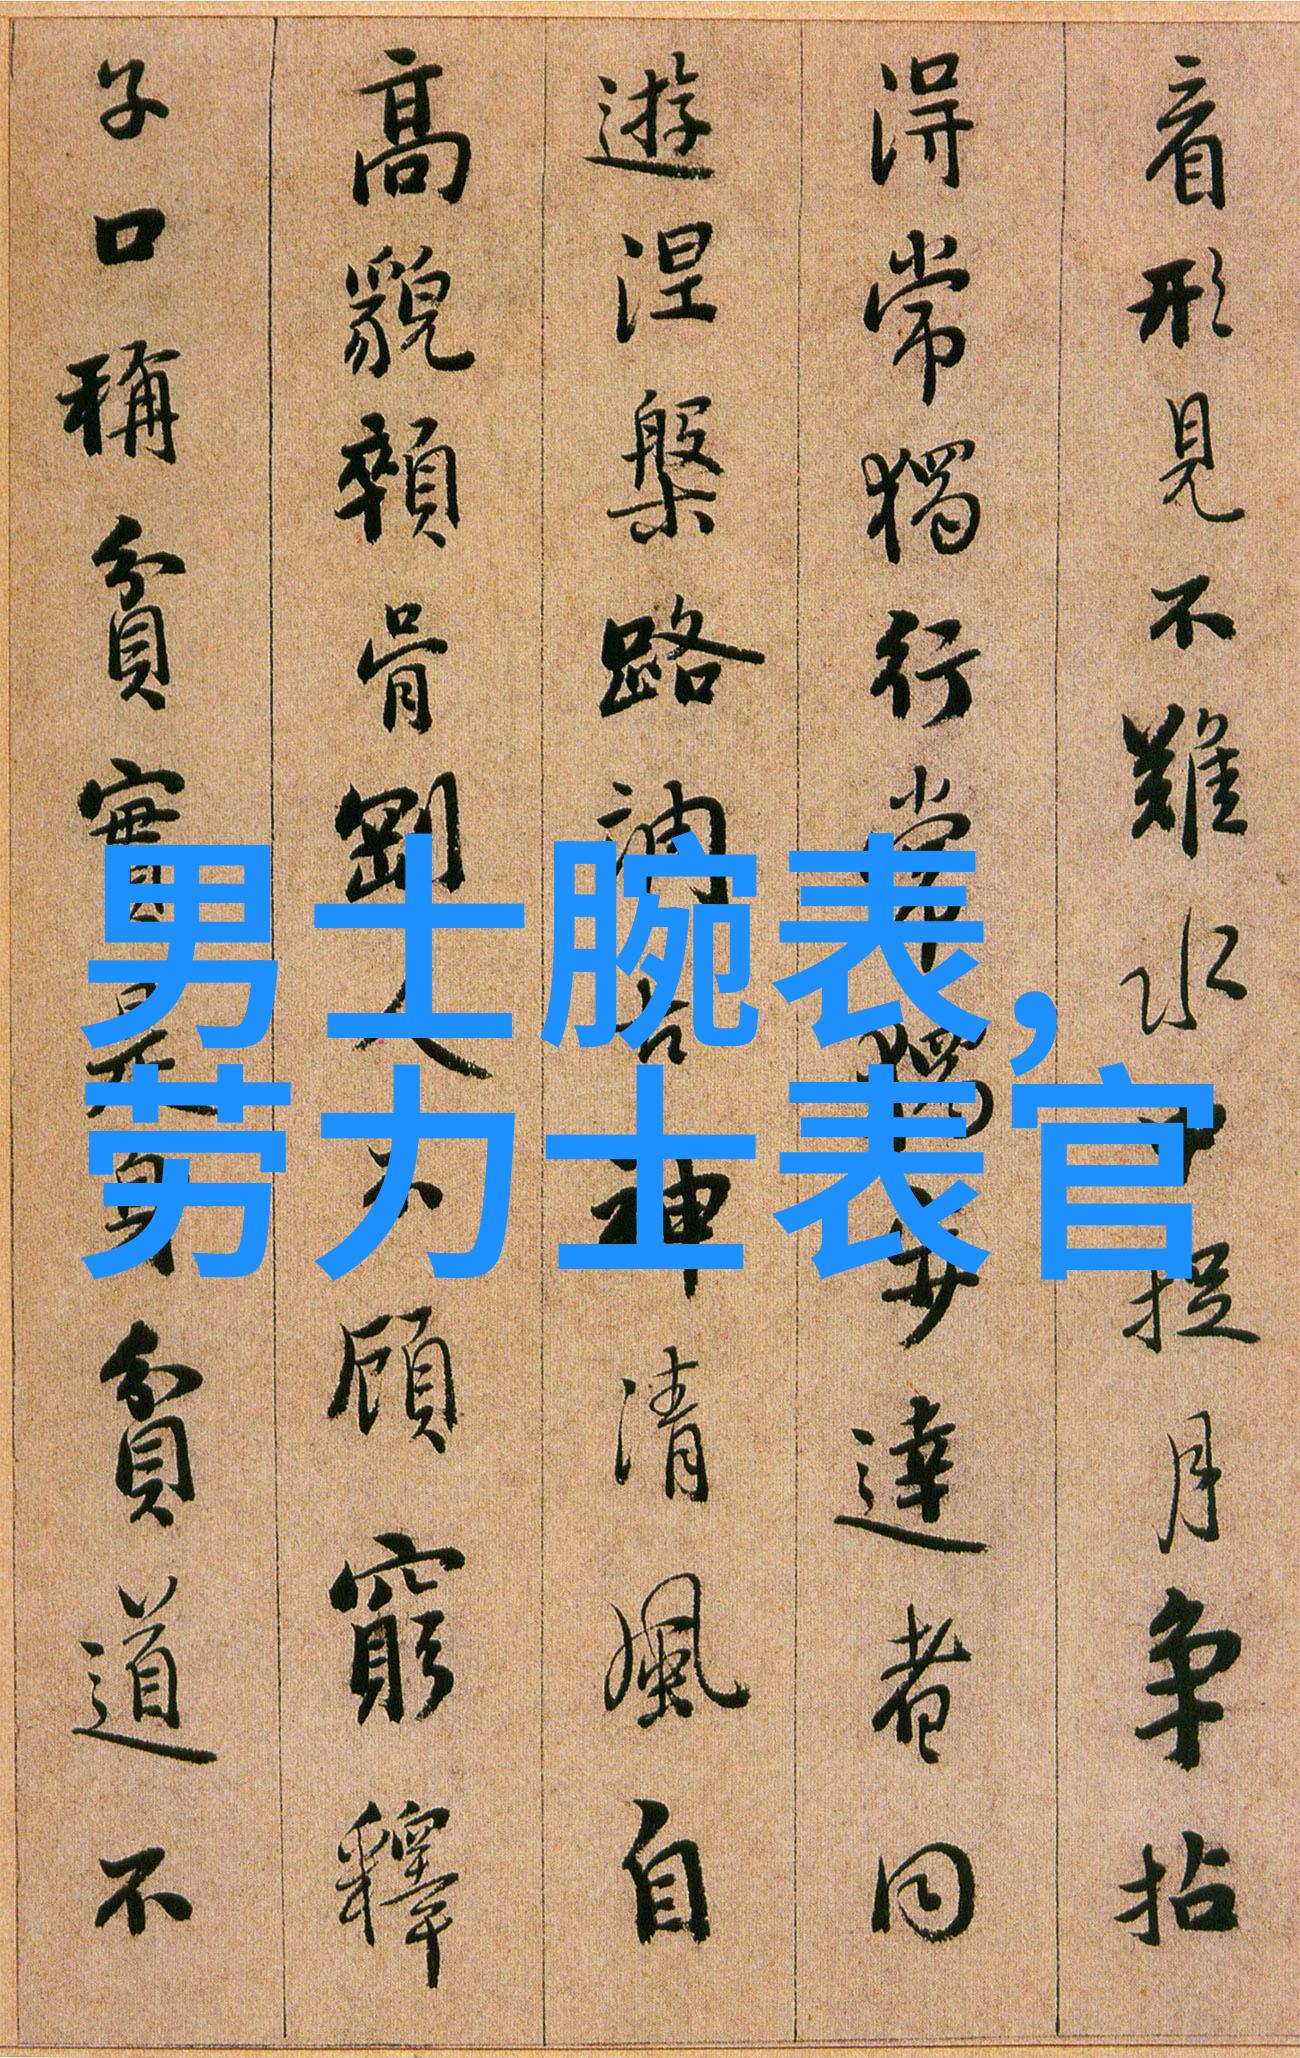 看形見不難水中捉月争拈
得常獨行常獨步達者同
遊涅槃路調古神清風自
高貌顇骨剛人不顧窮釋
子口稱貧實是身貧道不
男士腕表,
劳力士表官